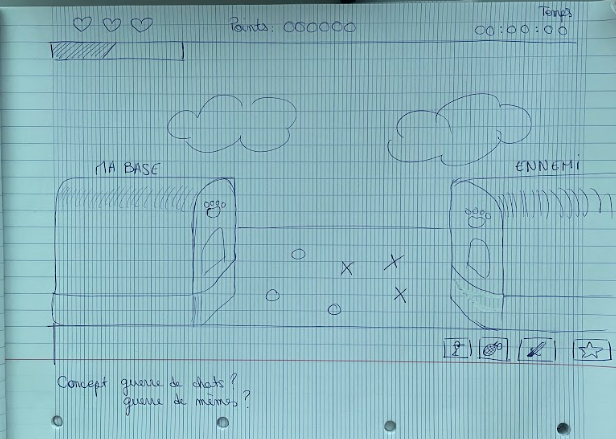 Temps
Points: 000000
00:00:00
MA BASE
ENNEMI
Concept guerre de chats?
guerre de mèmes?